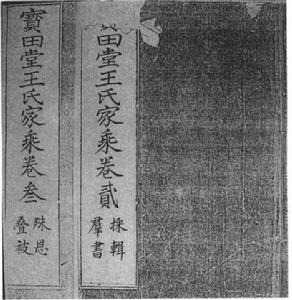 田堂王氏家乘卷貳
採輯
羣書
寶田堂王氏家乘卷叁
殊恩
叠被